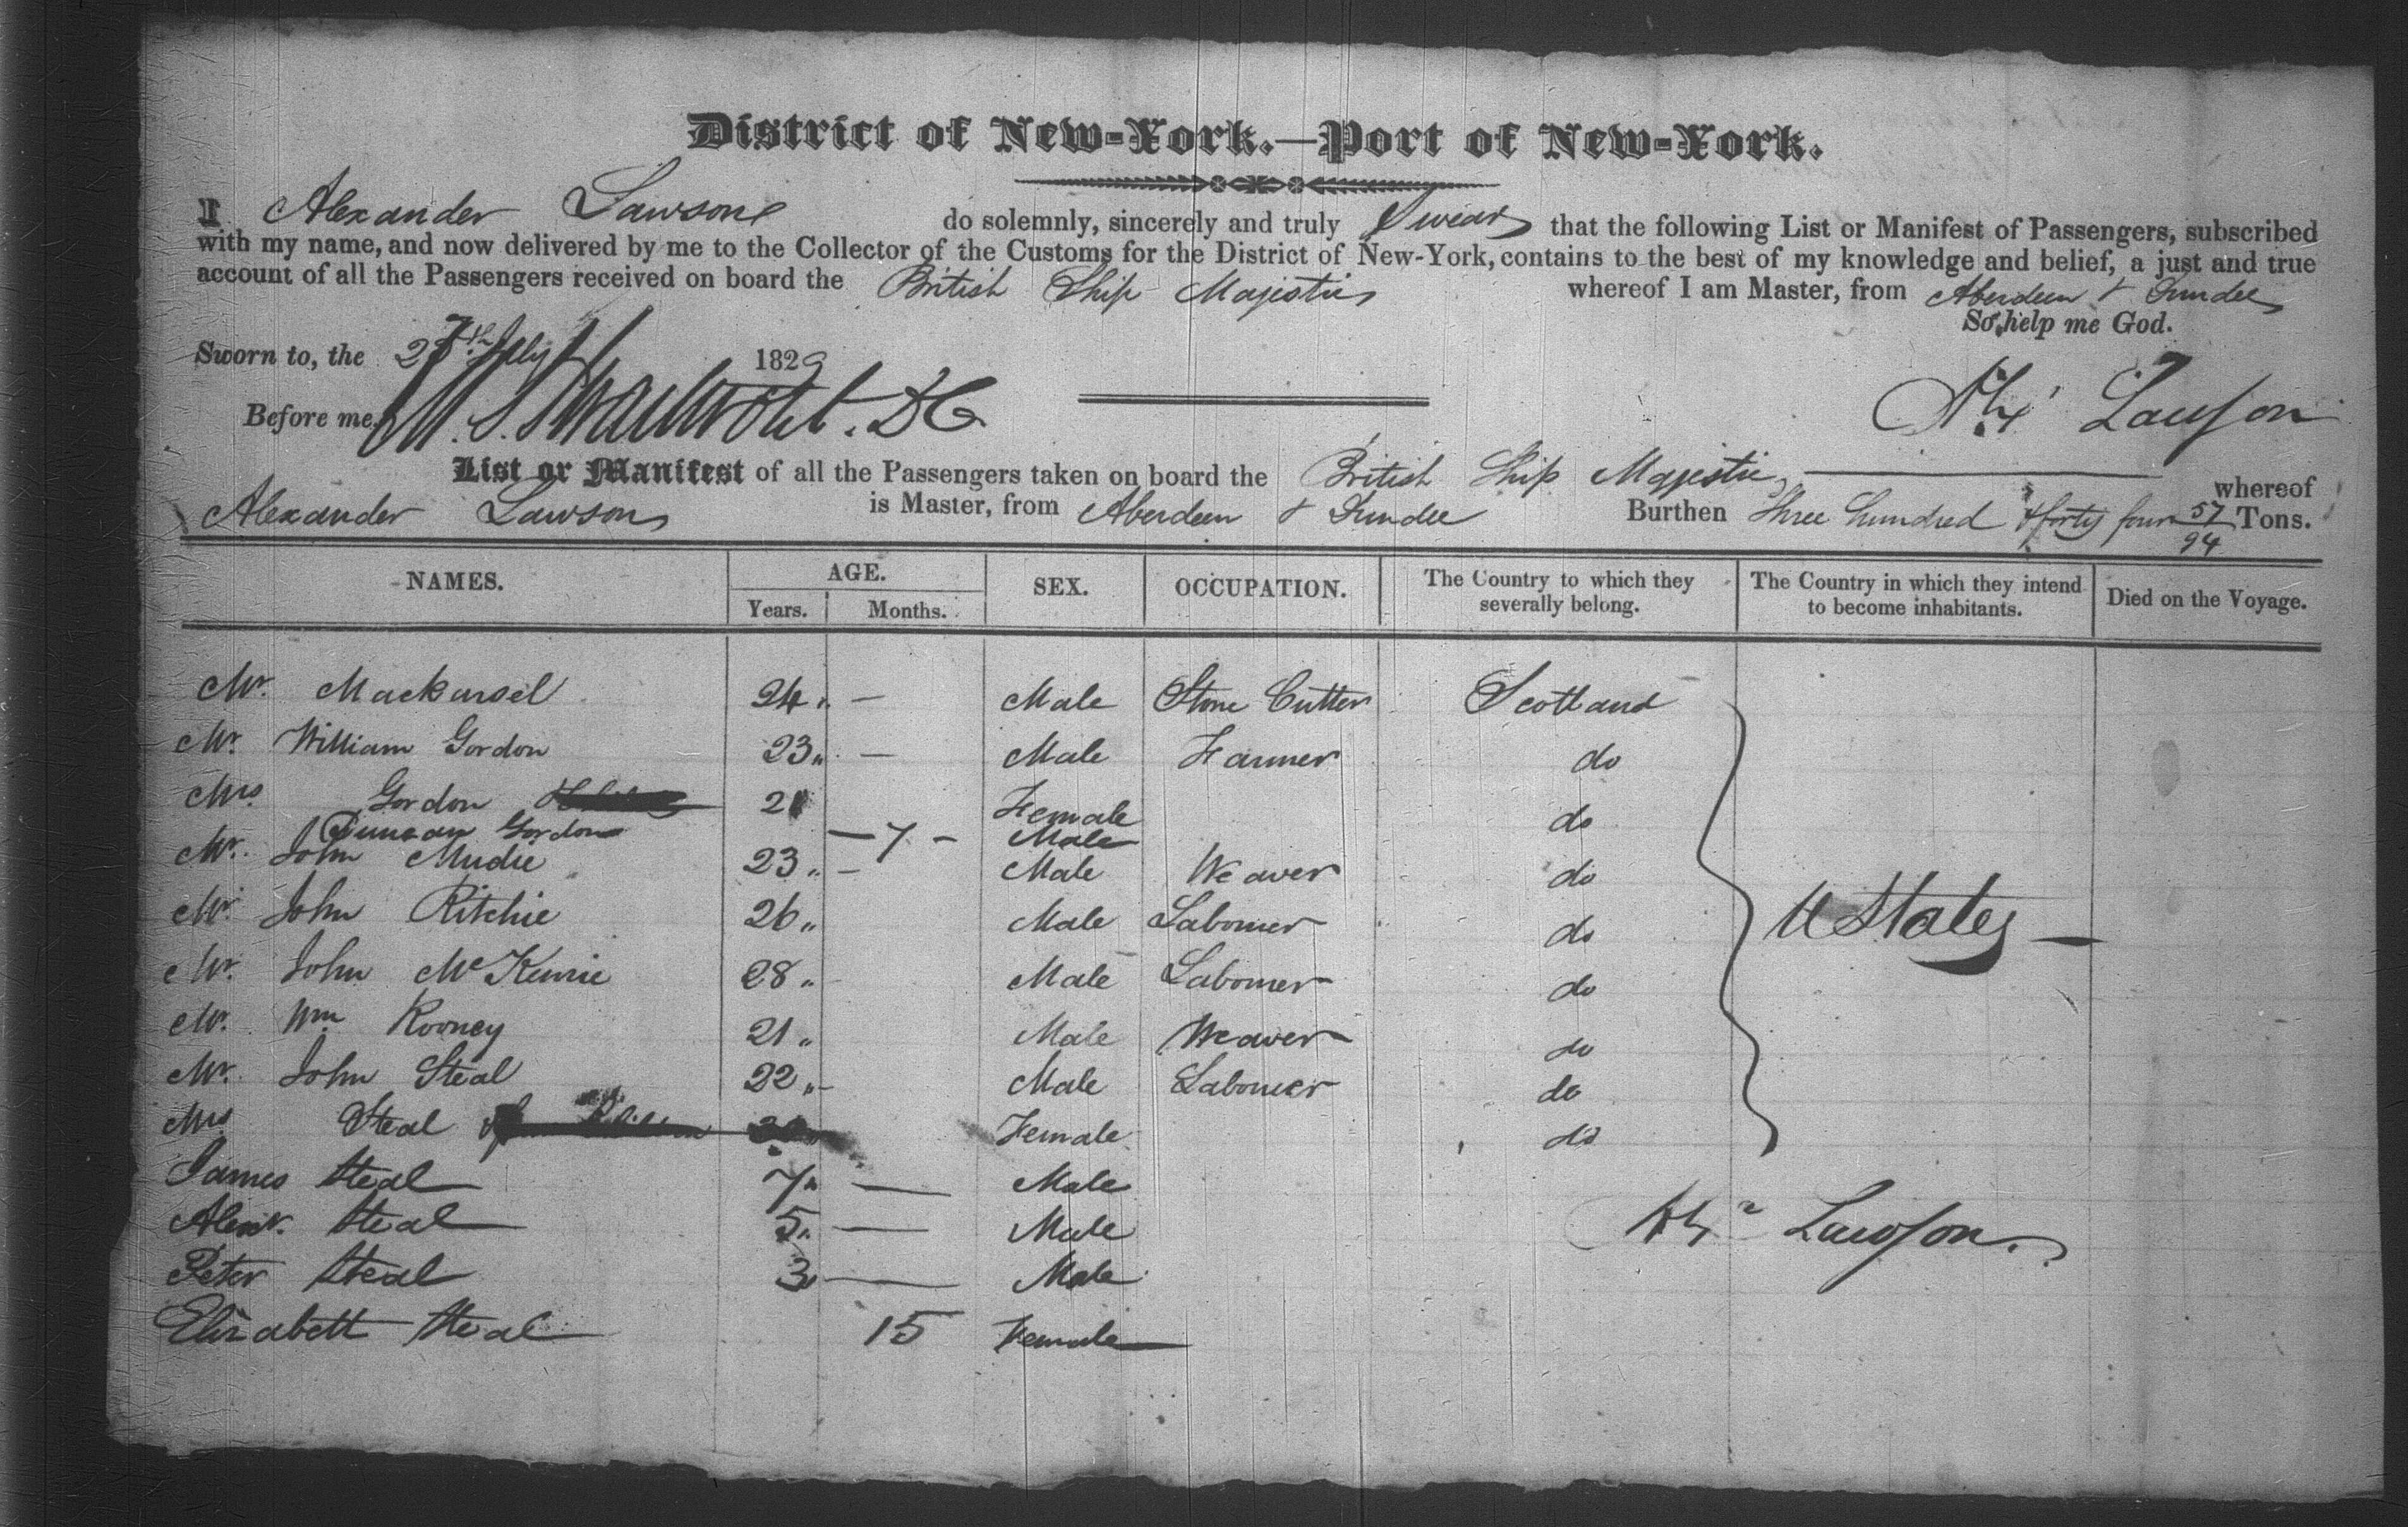 District of New-York.—Port of New-York.
I Alexander Lawson do solemnly, sincerely and truly Swear that the following List or Manifest of Passengers, subscribed
with my name, and now delivered by me to the Collector of the Customs for the District of New-York, contains to the best of my knowledge and belief, a just and true
account of all the Passengers received on board the British Ship Majestic whereof I am Master, from Aberdeen & Dundee
So help me God.
Sworn to, the 27th July 1829
Before me, Alexr Lawson
List or Manifest of all the Passengers taken on board the British Ship Majestic whereof
Alexander Lawson is Master, from Aberdeen & Dundee Burthen Three hundred & forty four 57/94 Tons.
NAMES. AGE. SEX. OCCUPATION. The Country to which they severally belong. The Country in which they intend to become inhabitants. Died on the Voyage.
Years. Months.
Mr. Mackursel 24 „ — Male Stone Cutter Scotland
Mr. William Gordon 23 „ — Male Farmer do
Mrs. Gordon 21 Female do
Duncan Gordon — 7 — Male
Mr. John Mudie 23 „ — Male Weaver do
Mr. John Ritchie 26 „ Male Labourer do
U States —
Mr. John McKenzie 28 „ Male Labourer do
Mr. Wm Rooney 21 „ Male Weaver do
Mr. John Steal 22 „ Male Labourer do
Mrs Steal Female do
James Steal 7 „ — Male
Alexr. Steal 5 „ — Male
Alexr Lawson.
Peter Steal 3 „ — Male
Elizabeth Steal 15 Female